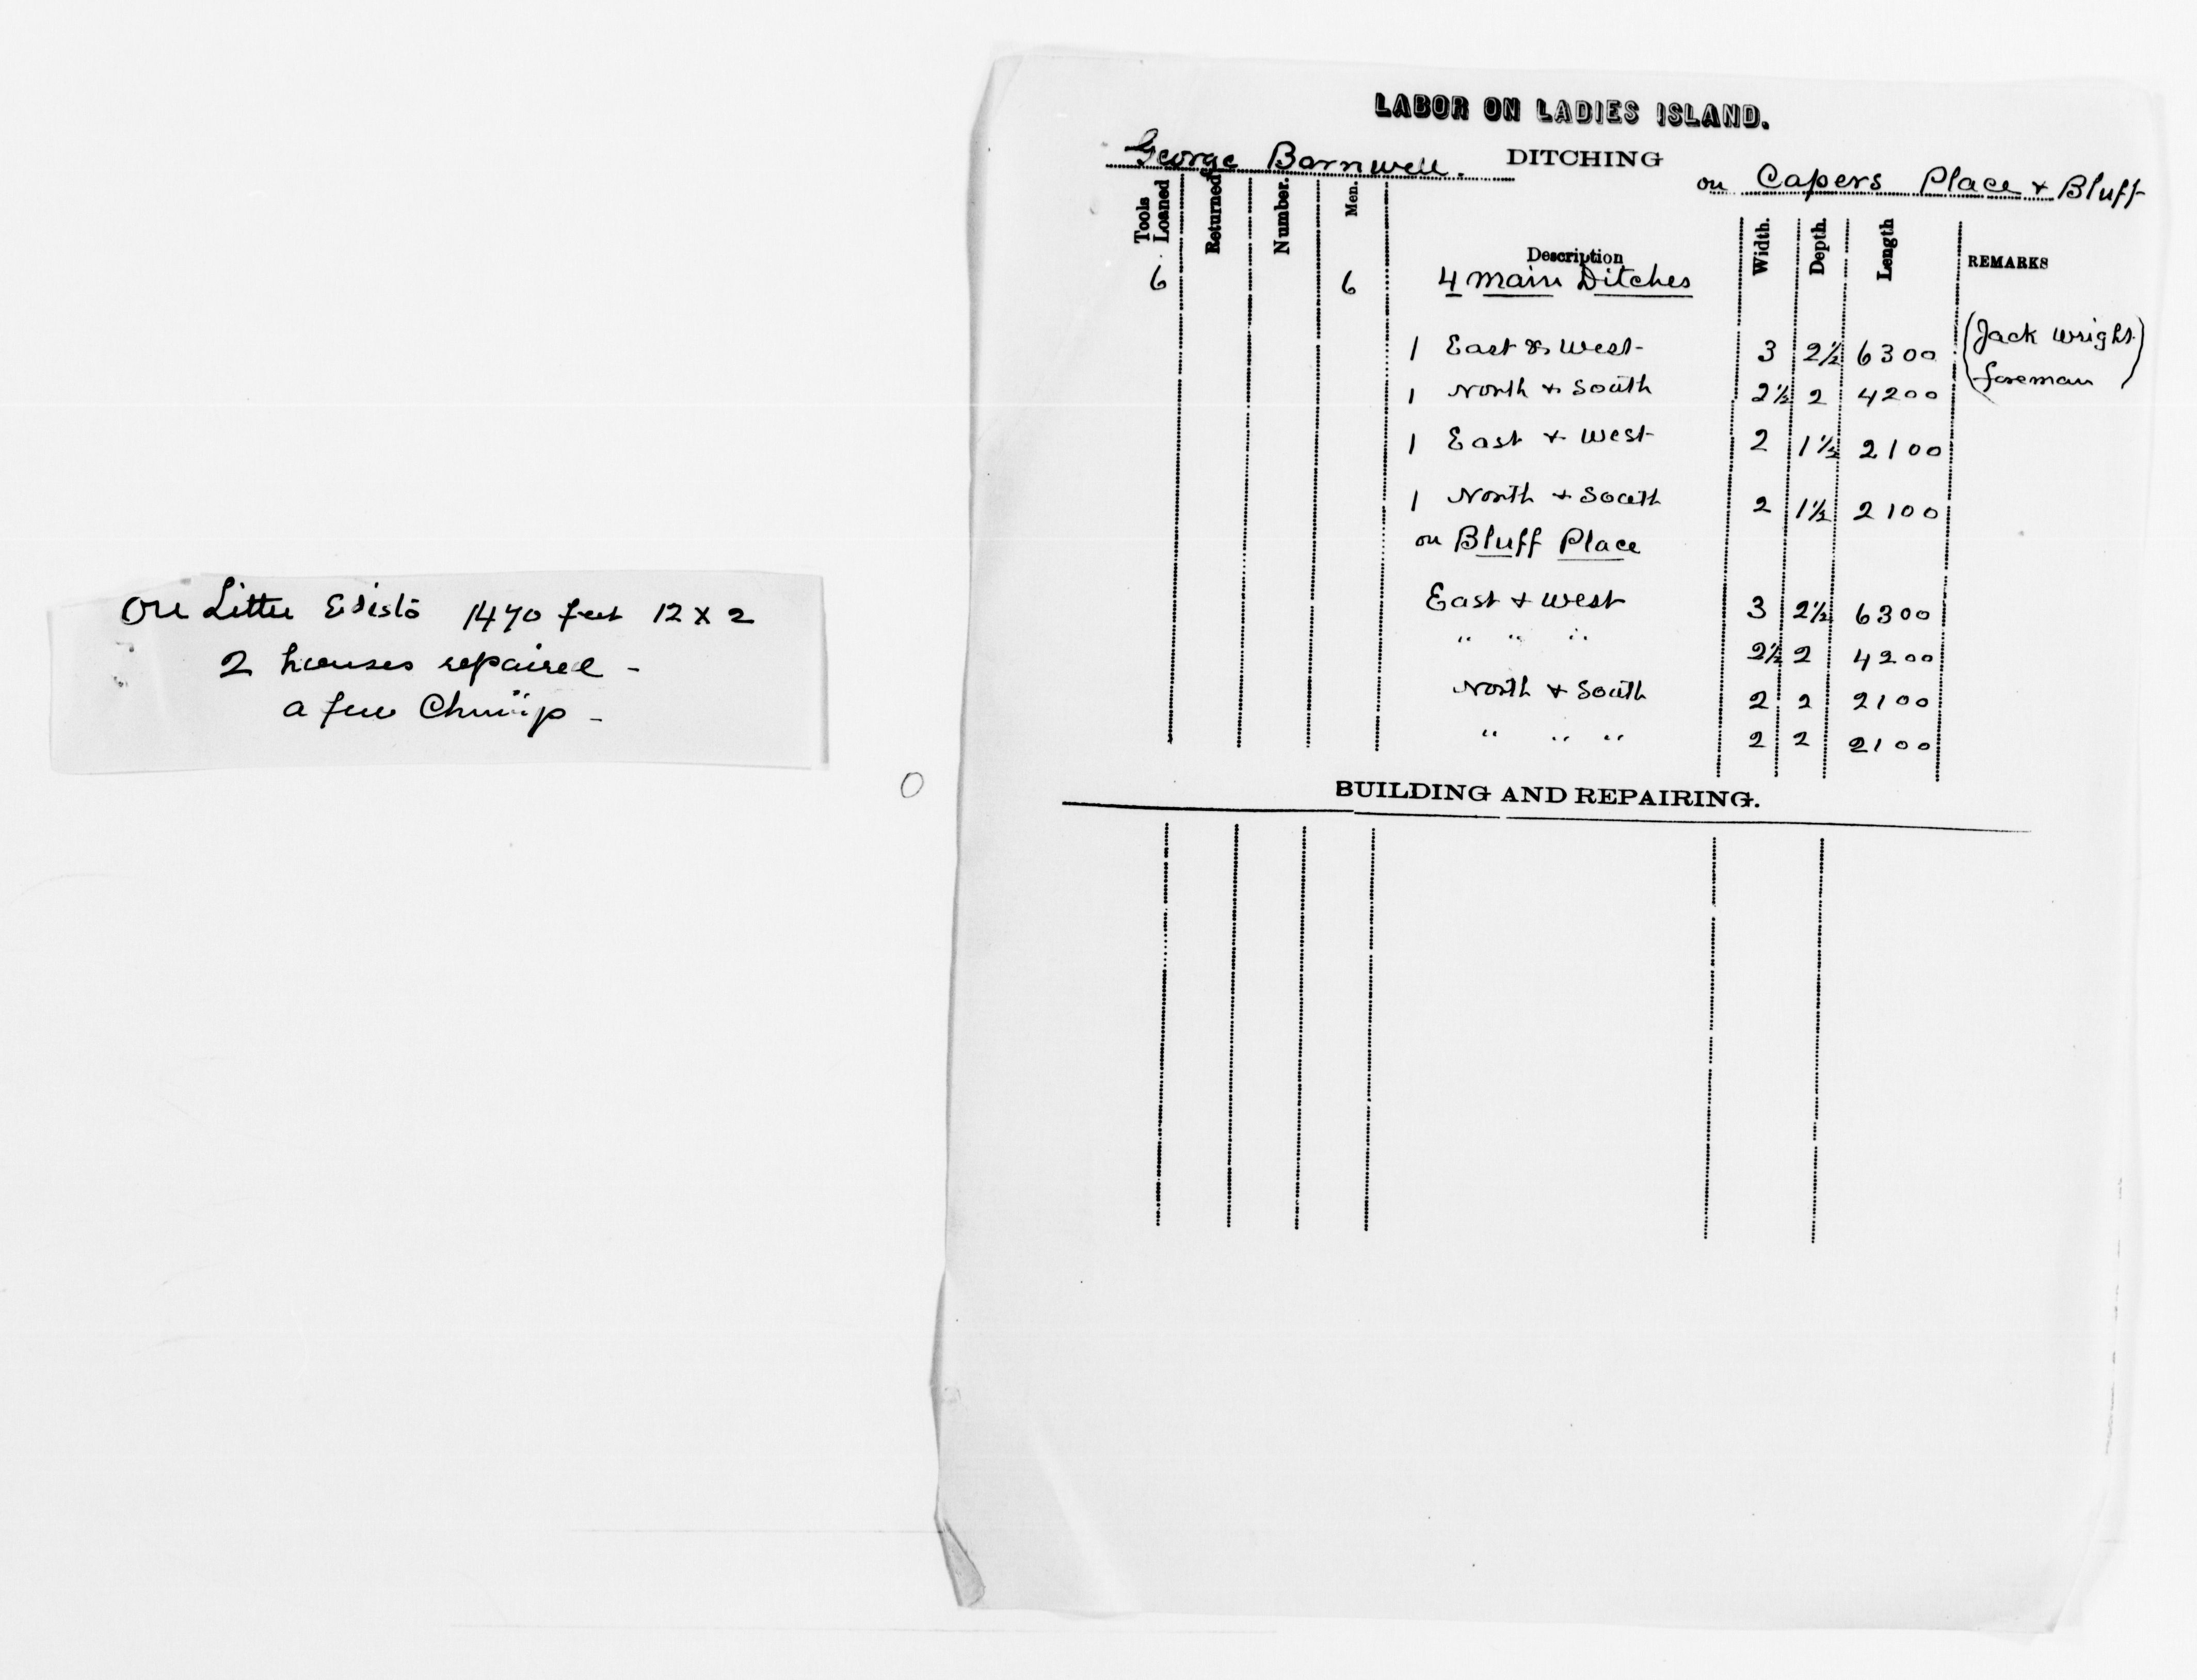 On Little Edisto 1470 feet 12 x 2
2 houses repaired -
a few
LABOR ON LADIES ISLAND.
George Barnwell. DITCHING
on Capers Place & Bluff
Tools Loaned Returned Number. Men. Description Width. Depth. Length REMARKS
6 6 4 Main Ditches
1 East & West 3 2½ 6300 (Jack Wright
foreman)
1 North & South 2½ 2 4200
1 East & West 2 1½ 2100
1 North & South 2 1½ 2100
on Bluff Place
East & West 3 2½ 6300
" " " 2½ 2 4200
North & South 2 2 2100
" " " 2 2 2100
BUILDING AND REPAIRING.